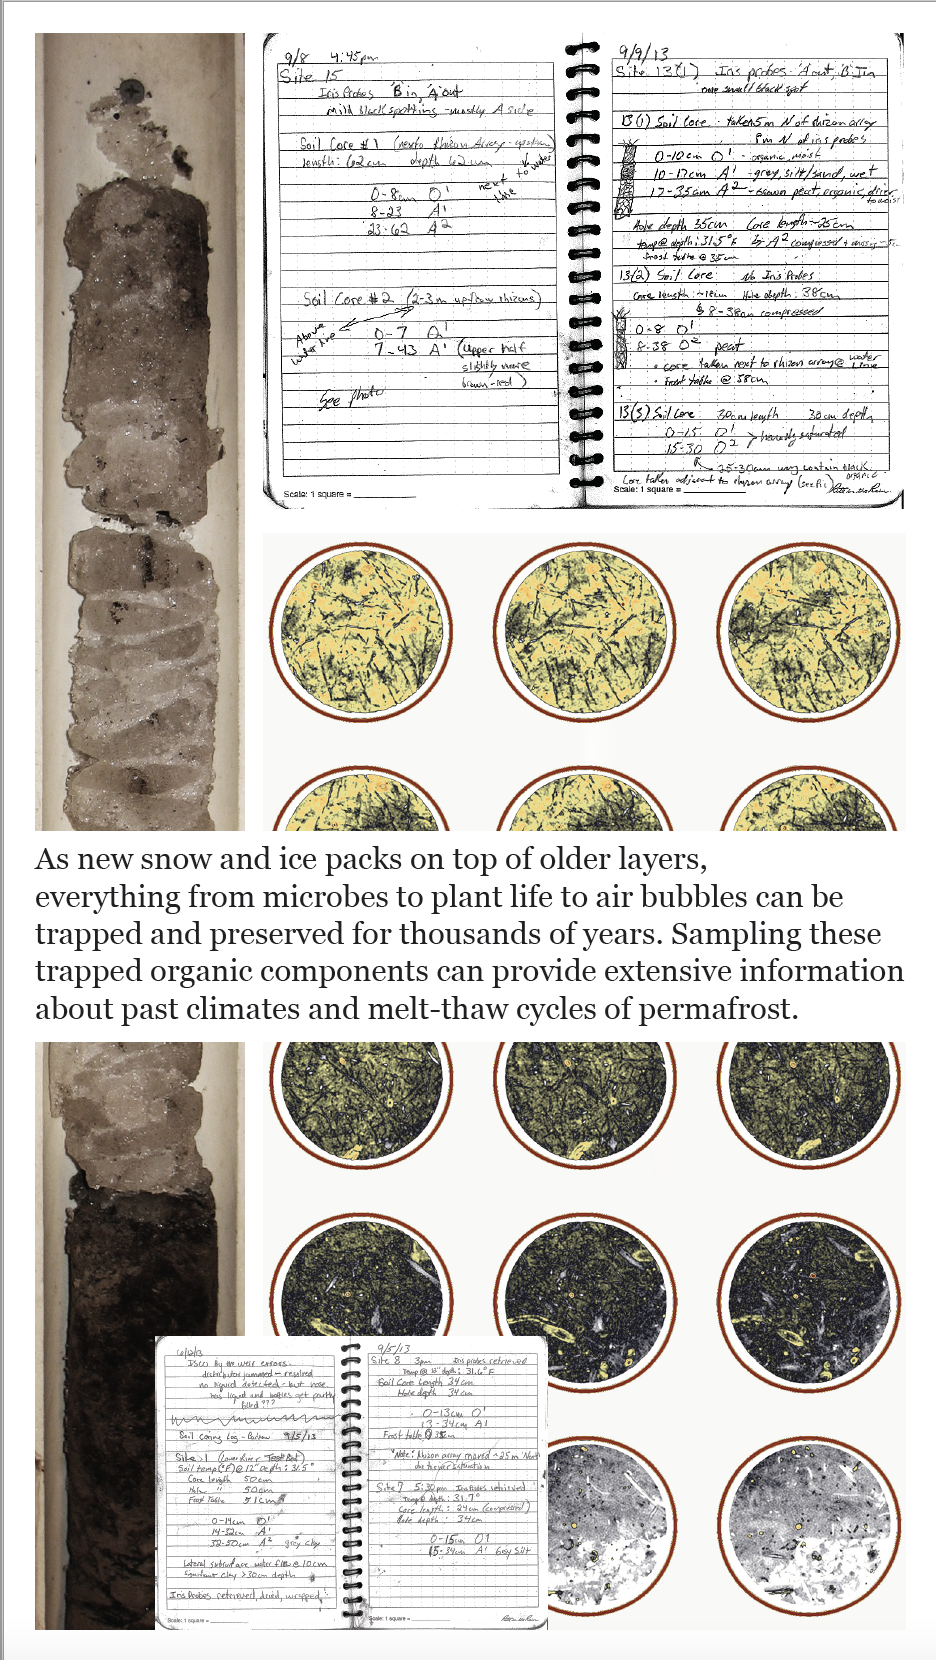 9/8 4:45pm
Site 15
Iris Probes B in, A out
mild black spotting - mostly A side
Soil Core #1 (next to Rhizon Array - upstream)
length: 62cm depth 62cm
next to water line
0-8cm O¹
8-23 A¹
23-62 A²
Soil Core #2 (2-3m up/down rhizons)
Above water line
0-7 O¹
7-43 A¹ (upper half
slightly more
brown-red)
See photo
Scale: 1 square =
9/9/13
Site 13(1) Iris probes - A out, B in
one small black spot
13(1) Soil Core - taken 5m N of rhizon array
1m N of iris probes
0-10cm O¹ - organic, moist
10-17cm A¹ - grey, silt/sand, wet
17-35cm A² - brown peat, organic, drier
to moist
Hole depth 35cm Core length ~25cm
temp @ depth: 31.5°F A² compressed
frost table @ 35cm
13(2) Soil Core No Iris Probes
Core length: ~18cm Hole depth: 38cm
8-38cm compressed
0-8 O¹
8-38 O² peat
• core taken next to rhizon array @ water line
• Frost table @ 38cm
13(3) Soil Core 30cm length 30cm depth
0-15 O¹
15-30 O² > heavily saturated
25-30cm may contain black
organic
Core taken adjacent to rhizon array (see Pic)
Scale: 1 square =
As new snow and ice packs on top of older layers,
everything from microbes to plant life to air bubbles can be
trapped and preserved for thousands of years. Sampling these
trapped organic components can provide extensive information
about past climates and melt-thaw cycles of permafrost.
ISCO by the weir errors.
distributor jammed - resolved
no liquid detected - but hose
has liquid and bottles get partly
filled???
Soil Coring Log - Barrow 9/5/13
Site 1 (Lower River Test Bed)
Soil temp (°F) @ 12" Depth: 31.5°
Core length 50cm
Hole " 50cm
Frost Table 51cm
0-14cm O¹
14-32cm A¹
32-50cm A² grey clay
Lateral subsurface water flow @ 10cm
Significant clay >30cm depth
Iris Probes retrieved, dried, wrapped
Scale: 1 square =
9/5/13
Site 8 3pm Iris probes retrieved
Temp @ 12" depth: 31.6°F
Soil Core Length 34cm
Hole depth 34cm
0-13cm O¹
13-34cm A¹
Frost table @ 35cm
*Note: Rhizon array moved ~25m North
due to over saturation
Site 7 5:30pm Iris Probes retrieved
Temp @ depth: 31.7°
Core length: 24cm (compressed)
Hole depth: 34cm
0-15cm O¹
15-34cm A¹ Grey Silt
Scale: 1 square =